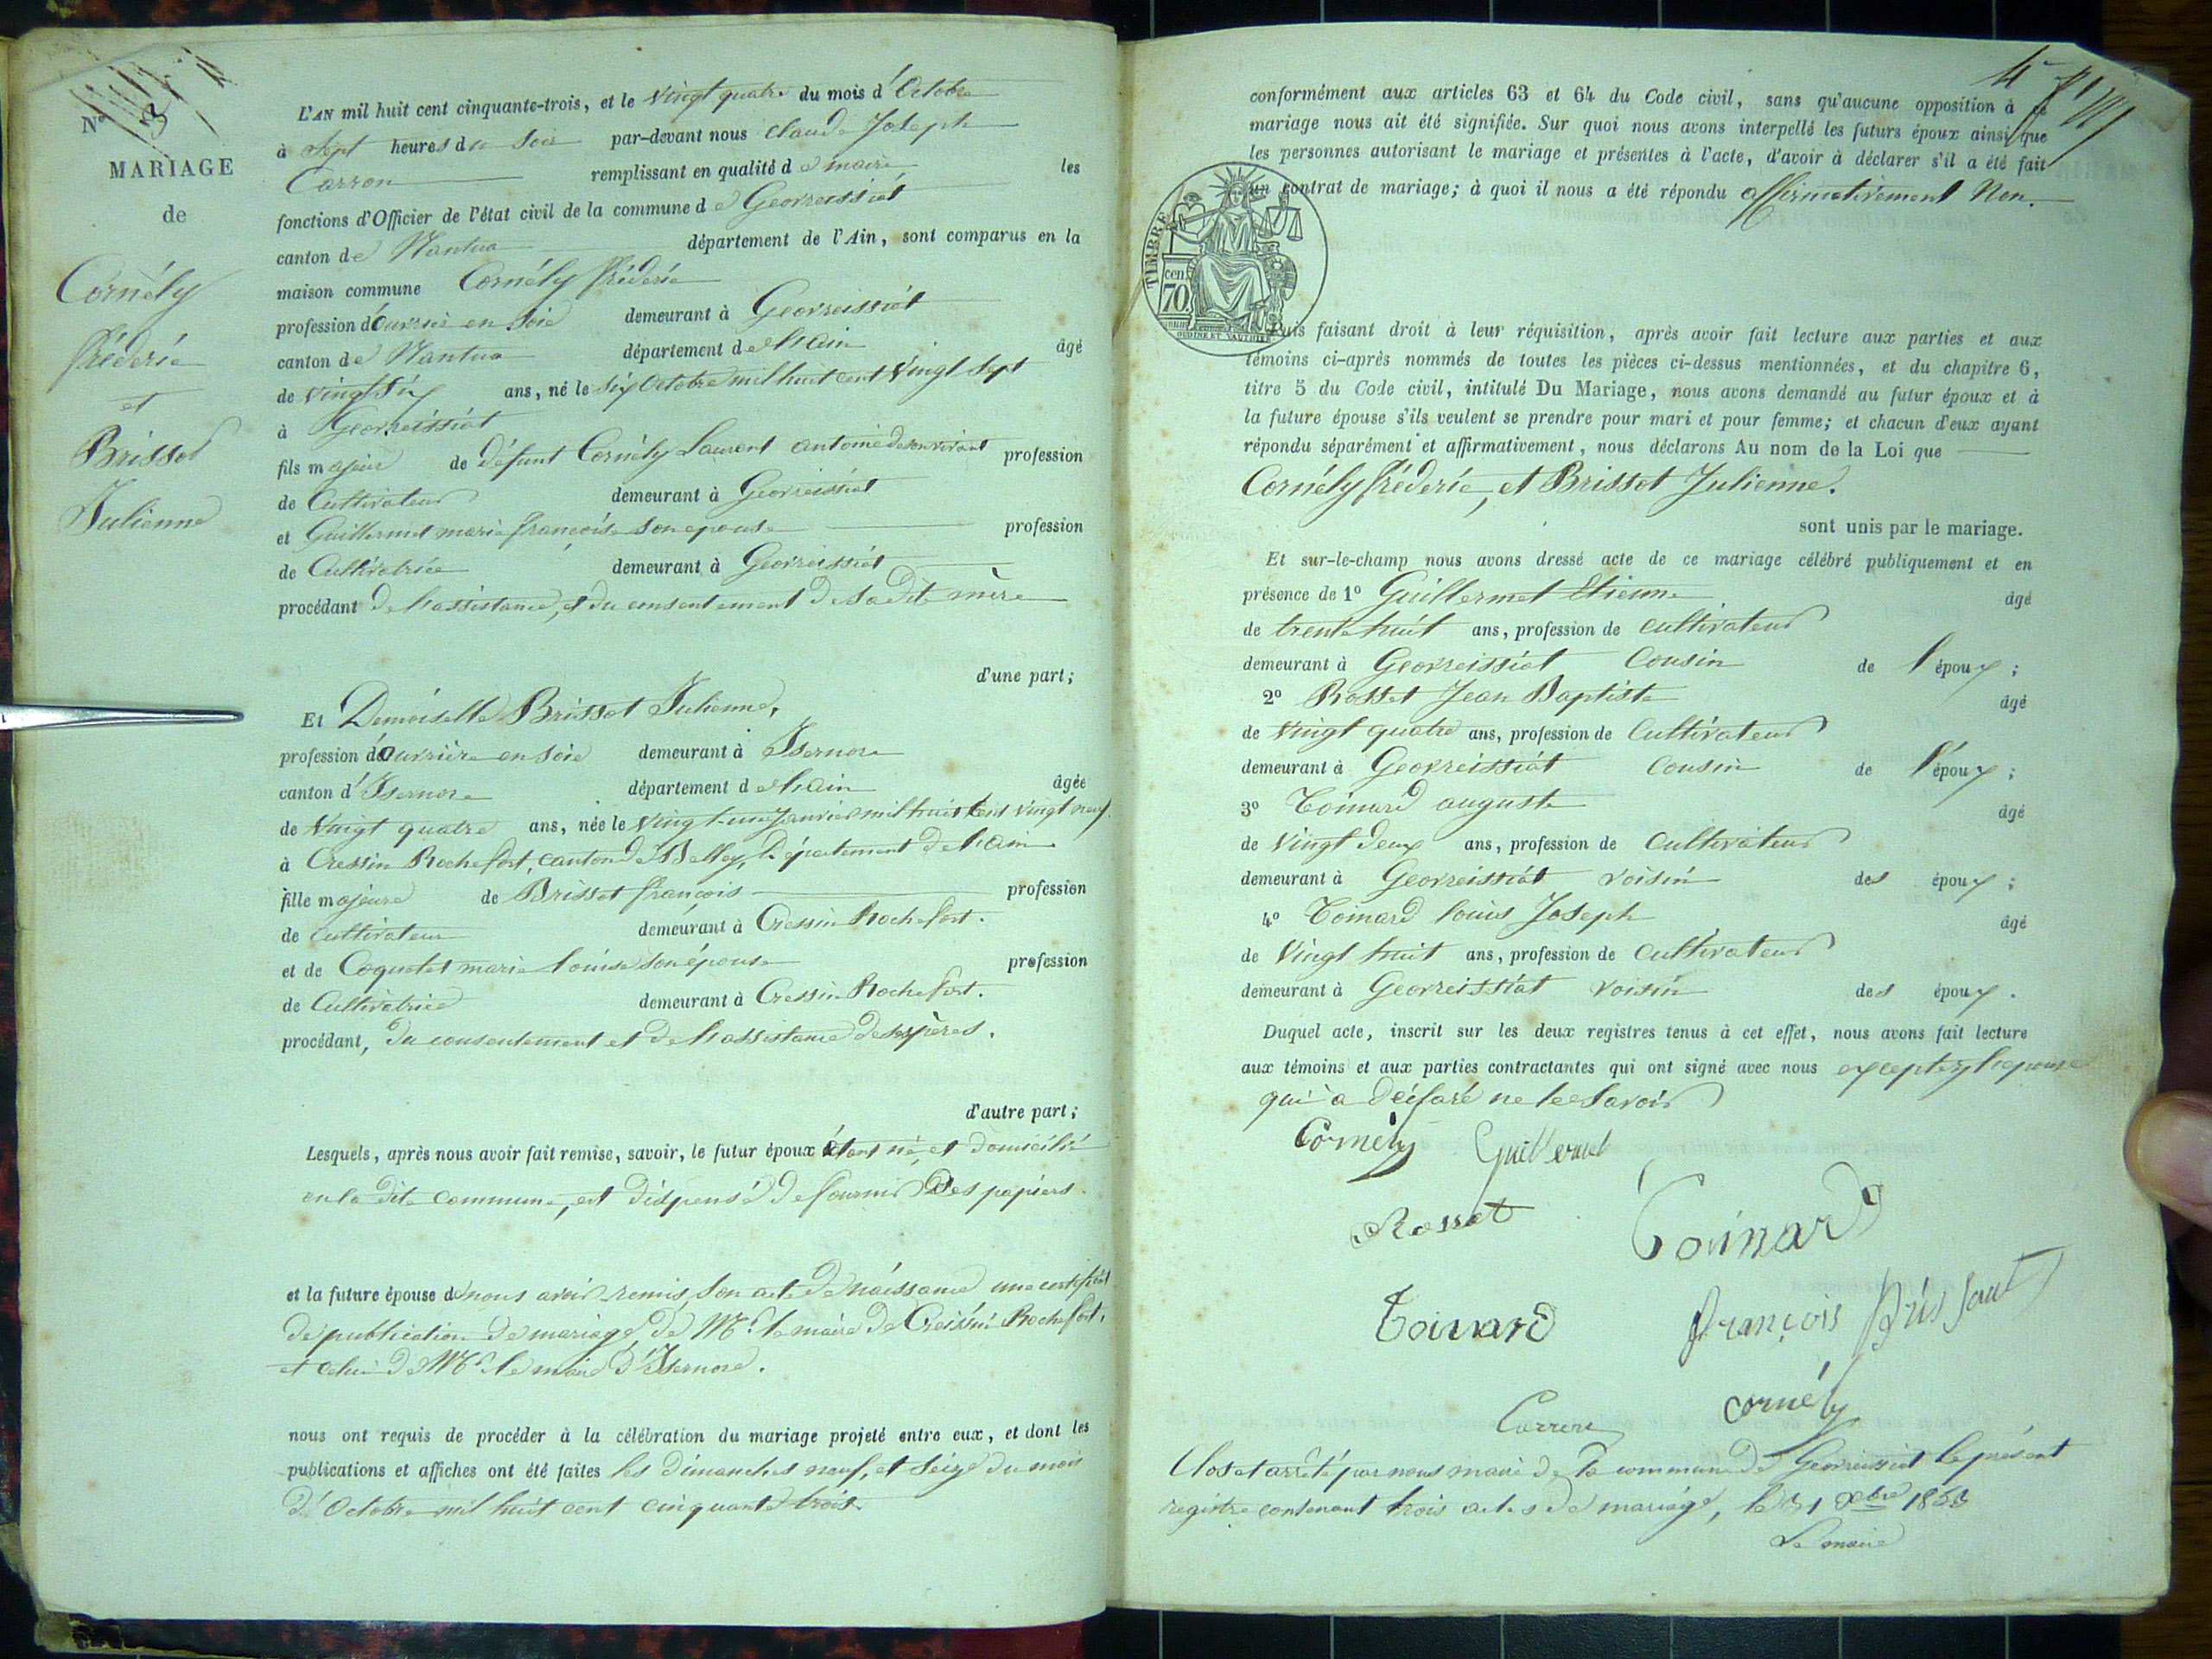 N° 3
MARIAGE
de
Cornély
fréderic
et
Brissot
Julienne
L'AN mil huit cent cinquante-trois, et le Vingt quatre du mois d'Octobre
à Sept heures du Soir par-devant nous Claude Joseph
Carron remplissant en qualité de maire les
fonctions d'Officier de l'état civil de la commune de Géovreissiat
canton de Nantua département de l'Ain, sont comparus en la
maison commune Cornély fréderic
profession d'ouvrier en Soie demeurant à Géovreissiat
canton de Nantua département de l'Ain âgé
de Vingt Six ans, né le Six Octobre mil huit cent Vingt Sept
à Géovreissiat
fils majeur de défunt Cornély Laurent antoine de son vivant profession
de Cultivateur demeurant à Géovreissiat
et Guillermet marie françoise son epouse profession
de Cultivatrice demeurant à Géovreissiat
procédant de l'assistance, et du consentement de sa dite mère
d'une part;
Et Demoiselle Brissot Julienne,
profession d'ouvrière en Soie demeurant à Isernore
canton d'Isernore département de l'Ain âgée
de Vingt quatre ans, née le Vingt-un Janvier mil huit Cent Vingt neuf
à Cressin Rochefort, canton de Belley, département de l'ain
fille majeure de Brissot françois profession
de Cultivateur demeurant à Cressin Rochefort.
et de Coquotet marie Louise son épouse profession
de Cultivatrice demeurant à Cressin Rochefort.
procédant, du consentement et de l'assistance de ses pères.
d'autre part;
Lesquels, après nous avoir fait remise, savoir, le futur époux étant né, et domicilié
en la dite commune, est dispensé de fournir des papiers.
et la future épouse de nous avoir remis son acte de naissance une certificat
de publication de mariage, de Mr. le maire de Creissin Rochefort,
et celui de Mr. le maire d'Isernore.
nous ont requis de procéder à la célébration du mariage projeté entre eux, et dont les
publications et affiches ont été faites les dimanches neuf, et Seize du mois
d'Octobre mil huit cent cinquante trois.
conformément aux articles 63 et 64 du Code civil, sans qu'aucune opposition à
mariage nous ait été signifiée. Sur quoi nous avons interpellé les futurs époux ainsi que
les personnes autorisant le mariage et présentes à l'acte, d'avoir à déclarer s'il a été fait
un contrat de mariage; à quoi il nous a été répondu affirmativement Non.
TIMBRE
70 cen.
Puis faisant droit à leur réquisition, après avoir fait lecture aux parties et aux
témoins ci-après nommés de toutes les pièces ci-dessus mentionnées, et du chapitre 6,
titre 5 du Code civil, intitulé Du Mariage, nous avons demandé au futur époux et à
la future épouse s'ils veulent se prendre pour mari et pour femme; et chacun d'eux ayant
répondu séparément et affirmativement, nous déclarons Au nom de la Loi que
Cornély fréderic, et Brissot Julienne.
sont unis par le mariage.
Et sur-le-champ nous avons dressé acte de ce mariage célébré publiquement et en
présence de 1° Guillermet Etienne âgé
de trente huit ans, profession de cultivateur
demeurant à Géovreissiat Cousin de l'époux;
2° Rosset Jean Baptiste âgé
de Vingt quatre ans, profession de Cultivateur
demeurant à Géovreissiat Cousin de l'époux;
3° Toinard auguste âgé
de Vingt deux ans, profession de Cultivateur
demeurant à Géovreissiat voisin des époux;
4° Toinard louis Joseph âgé
de Vingt huit ans, profession de Cultivateur
demeurant à Géovreissiat voisin des époux.
Duquel acte, inscrit sur les deux registres tenus à cet effet, nous avons fait lecture
aux témoins et aux parties contractantes qui ont signé avec nous exceptez l'epouse
qui a déclaré ne le Savoir
Cornély Guillermet
Rosset Toinard
Toinard françois Brissaut
Carron cornély
Clos et arrêté par nous maire de la commune de Géovreissiat le présent
registre contenant trois actes de mariage, le 31 Xbre 1853
Le maire